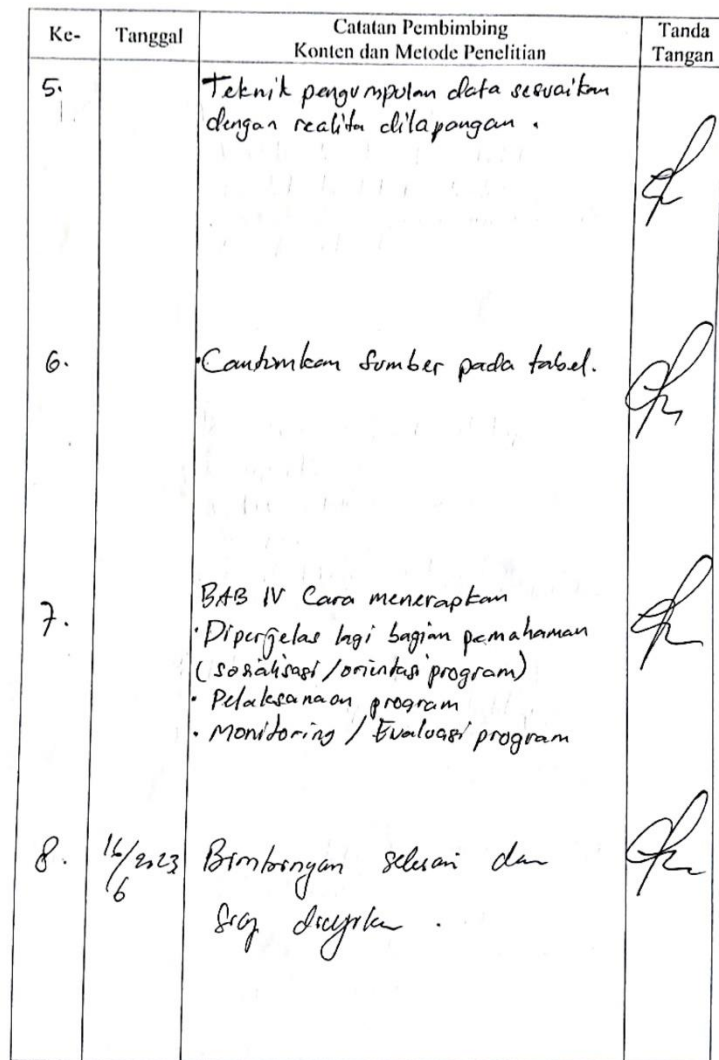 Ke- Tanggal Catatan Pembimbing Tanda
Konten dan Metode Penelitian Tangan
5. Teknik pengumpulan data sesuaikan
dengan realita dilapangan.
6. Cantumkan sumber pada tabel.
7. BAB IV Cara menerapkan
· Diperjelas lagi bagian pemahaman
(sosialisasi/orientasi program)
· Pelaksanaan program
· Monitoring / Evaluasi program
8. 16/2023 Bimbingan selesai dan
6 siap diujikan.